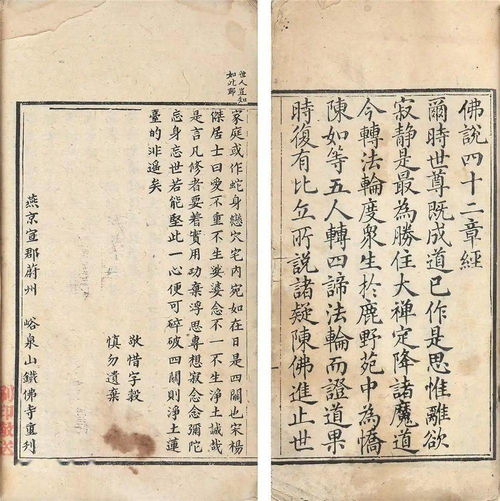 佛說四十二章經
爾時世尊既成道已作是思惟離欲
寂静是最為勝住大禪定降諸魔道
今轉法輪度衆生於鹿野苑中為憍
陳如等五人轉四諦法輪而證道果
時復有比丘所說諸疑陳佛進止世
世人豈知
如此耶
家庭或作蛇身戀穴宅内宛如在日是四關也宋楊
傑居士曰愛不重不生娑婆念不一不生淨土誠哉
是言凡修者要着實用功棄浮思專想寂念念彌陀
忘身忘世若能堅此一心便可碎破四關則淨土蓮
臺的非遥矣
敬惜字穀
慎勿遺棄
燕京宣郡蔚州 峪泉山鐵佛寺重刊